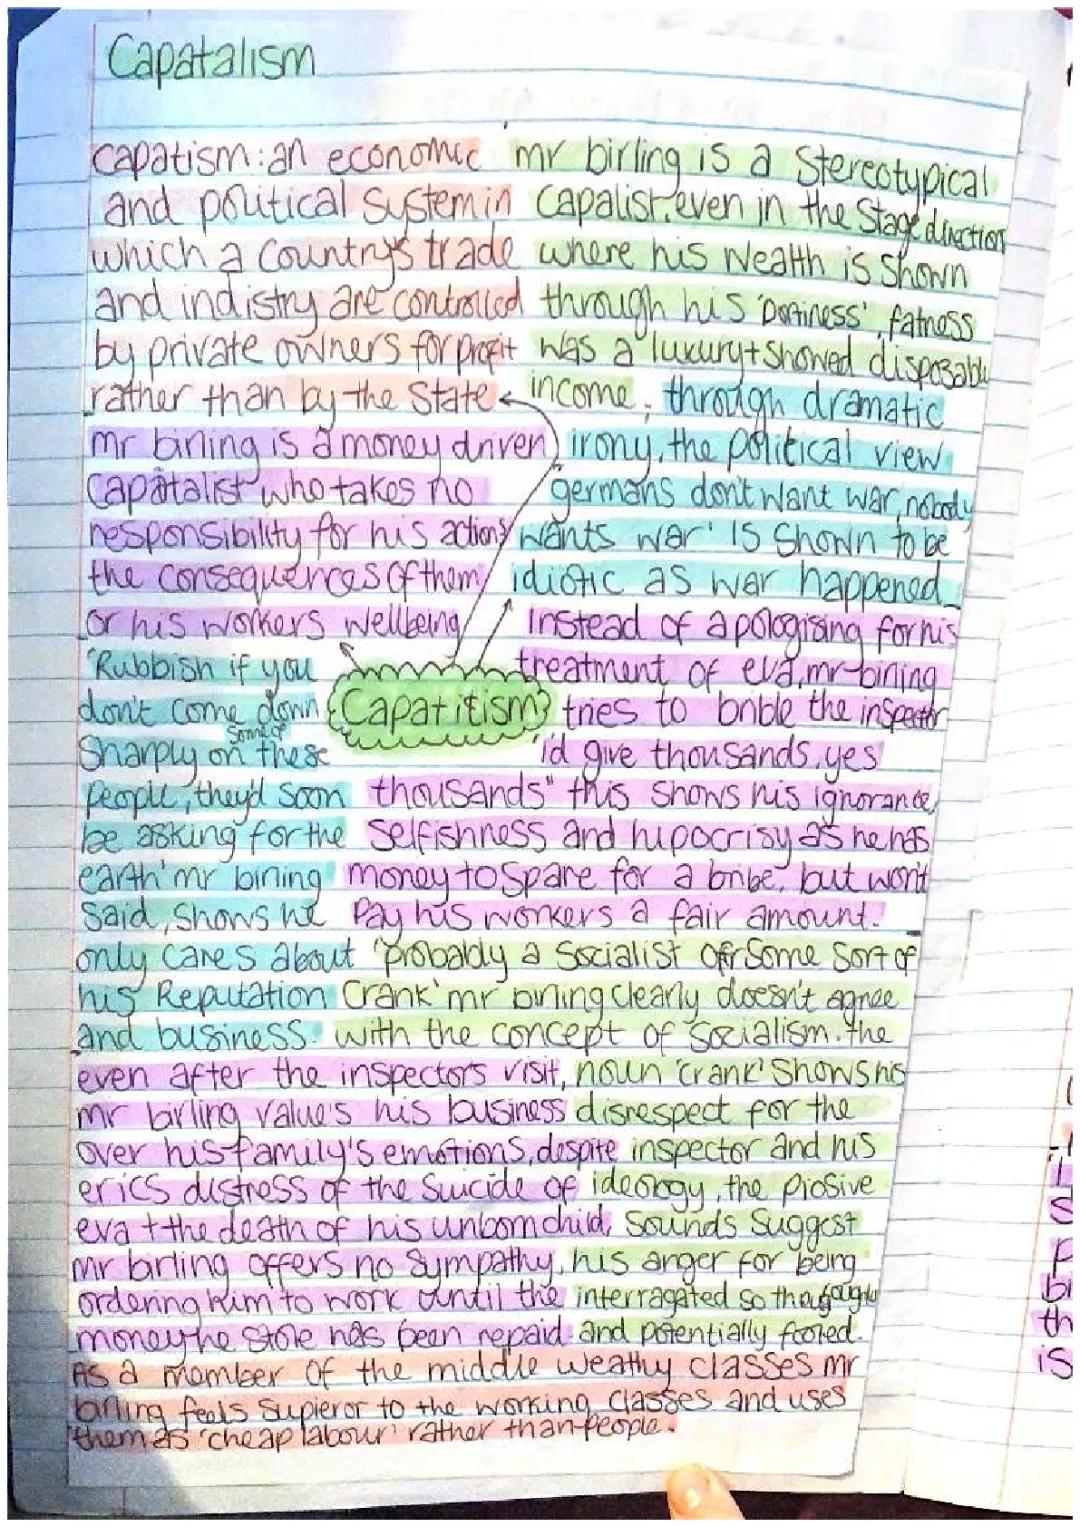 Capatalism
capatism: an economic
and political system in
which a country's trade
and indistry are controlled
by private owners for profit
rather than by the state
mr birling is a money driven
capatalist who takes no
responsibility for his actions
the consequences of them
or his workers wellbeing
'Rubbish if you
don't come down
sharply on some of these
people, they'd soon
be asking for the
earth' mr birling
said, shows he
only cares about
his Reputation
and business.
even after the inspectors visit,
mr birling value's his business
over his family's emotions, despite
erics distress of the suicide of
eva + the death of his unborn child,
mr birling offers no sympathy,
ordering him to work until the
money he stole has been repaid.
mr birling is a stereotypical
capalist, even in the stage direction
where his wealth is shown
through his 'portiness', fatness
was a luxury + showed disposable
income, through dramatic
irony, the political view
germans don't want war, nobody
wants war' is shown to be
idiotic as war happened
Instead of apologising for his
treatment of eva, mr birling
tries to bribe the inspector
'id give thousands, yes
thousands" this shows his ignorance,
selfishness and hipocrisy as he has
money to spare for a bribe, but won't
pay his workers a fair amount.
'probably a socialist or some sort of
crank' mr birling clearly doesn't agree
with the concept of socialism. the
noun 'crank' shows his
disrespect for the
inspector and his
ideology, the plosive
sounds suggest
his anger for being
interragated so thoughly
and potentially fooled.
Capatitism
As a member of the middle weathy classes mr
birling feels supieror to the working classes and uses
them as 'cheap labour' rather than people.